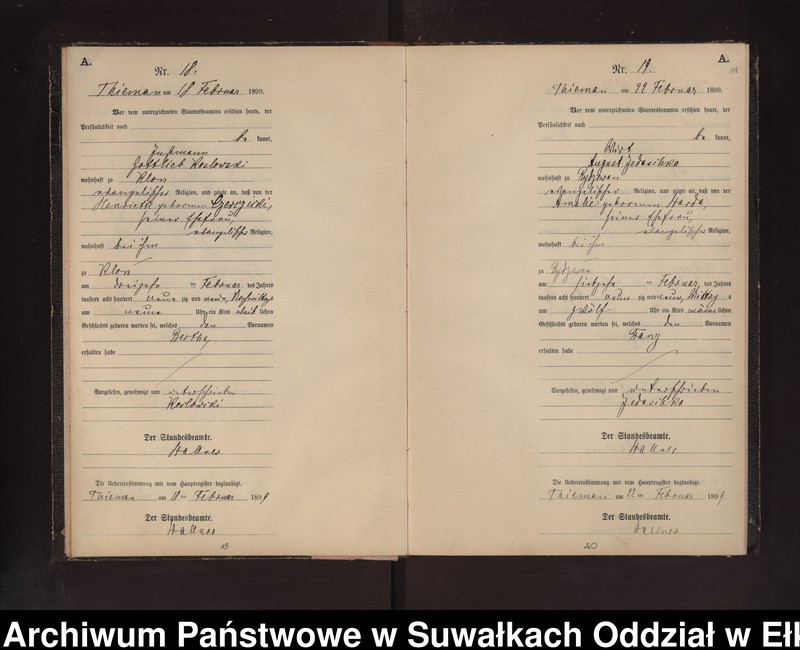 A.
Nr. 18.
Thieman am 18 Februar 1899.
Vor dem unterzeichneten Standesbeamten erschien heute, der
Persönlichkeit nach
be kannt,
Instmann
Gottlieb Koslowski
wohnhaft zu Klon
evangelischer Religion, und zeigte an, daß von der
Henriette geborenen
seiner Ehefrau,
evangelischer Religion,
wohnhaft bei ihm
zu Klon
am dreizehn ten Februar des Jahres
tausend acht hundert neun zig und neun, Nachmittags
um neun Uhr ein Kind weib lichen
Geschlechts geboren worden sei, welches den Vornamen
Bertha
erhalten habe
Vorgelesen, genehmigt und unterschrieben
Koslowski
Der Standesbeamte.
Wallner
Die Uebereinstimmung mit dem Hauptregister beglaubigt.
Thieman am ten Februar 1899
Der Standesbeamte.
Wallner
19
A.
Nr. 19.
Thieman am 22 Februar 1899.
Vor dem unterzeichneten Standesbeamten erschien heute, der
Persönlichkeit nach
be kannt,
Wirt
August Jedaschko
wohnhaft zu Rydzewen
evangelischer Religion, und zeigte an, daß von der
Amalie geborenen
seiner Ehefrau,
evangelischer Religion,
wohnhaft bei ihm
zu Rydzewen
am ten Februar, des Jahres
tausend acht hundert neun zig und neun, Mittag s
um zwölf Uhr ein Kind männ lichen
Geschlechts geboren worden sei, welches den Vornamen
Franz
erhalten habe
Vorgelesen, genehmigt und unterschrieben
Jedaschko
Der Standesbeamte.
Wallner
Die Uebereinstimmung mit dem Hauptregister beglaubigt.
Thieman am 22 ten Februar 1899
Der Standesbeamte.
Wallner
20
Archiwum Państwowe w Suwałkach Oddział w Ełk